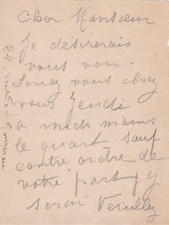 Cher Monsieur
Je désirerais
vous voir.
Serez vous chez
vous Jeudi
a midi moins
le quart sauf
contre ordre de
votre part j'y
serai Veuillez
24 rue